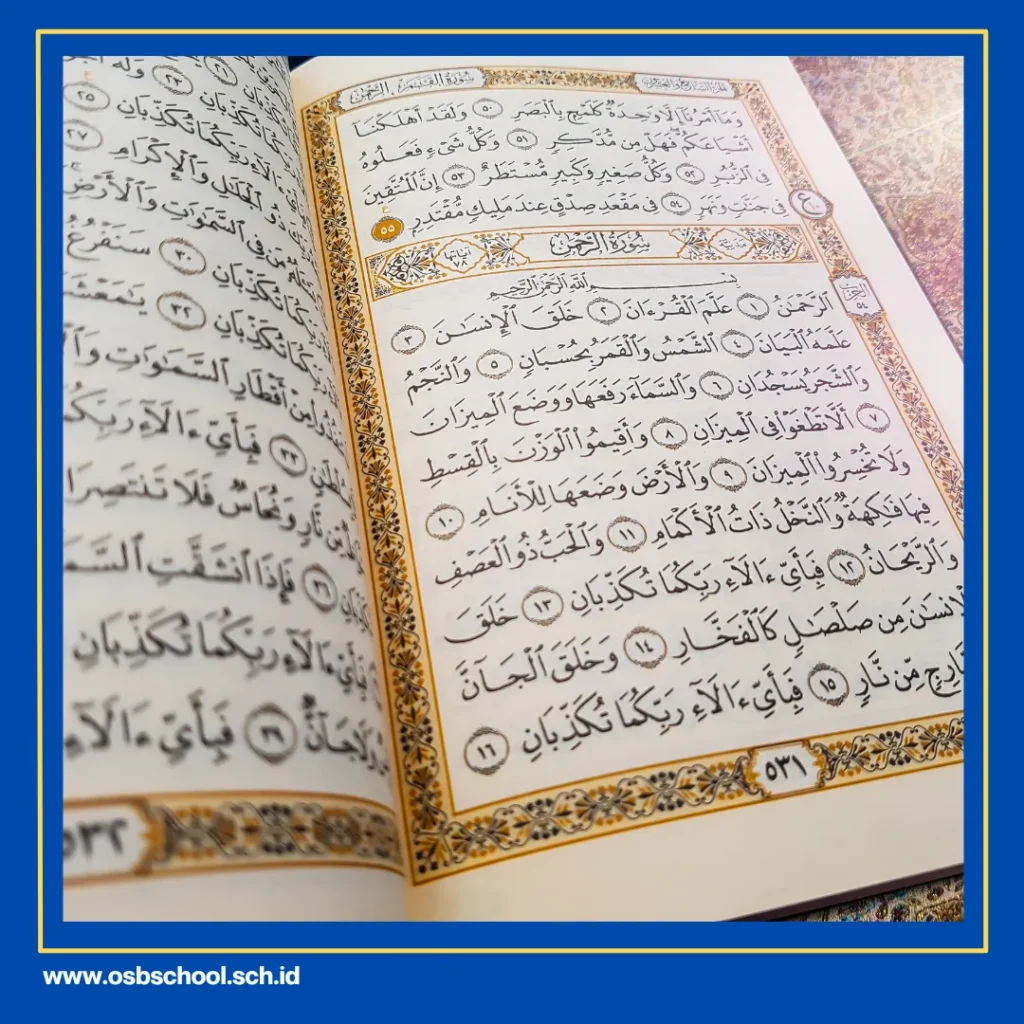 الجزء السابع والعشرون
سُورَةُ القَمَرِ . الرَّحْمٰن
وَمَآ أَمْرُنَآ إِلَّا وَٰحِدَةٌ كَلَمْحٍۭ بِٱلْبَصَرِ ٥٠ وَلَقَدْ أَهْلَكْنَآ
أَشْيَاعَكُمْ فَهَلْ مِن مُّدَّكِرٍ ٥١ وَكُلُّ شَىْءٍ فَعَلُوهُ
فِى ٱلزُّبُرِ ٥٢ وَكُلُّ صَغِيرٍ وَكَبِيرٍ مُّسْتَطَرٌ ٥٣ إِنَّ ٱلْمُتَّقِينَ
فِى جَنَّٰتٍ وَنَهَرٍ ٥٤ فِى مَقْعَدِ صِدْقٍ عِندَ مَلِيكٍ مُّقْتَدِرٍۭ ٥٥
مَدَنِيَّة سُورَةُ الرَّحْمٰن آيَاتُهَا ٧٨
بِسْمِ ٱللَّهِ ٱلرَّحْمَٰنِ ٱلرَّحِيمِ
ٱلرَّحْمَٰنُ ١ عَلَّمَ ٱلْقُرْءَانَ ٢ خَلَقَ ٱلْإِنسَٰنَ ٣
عَلَّمَهُ ٱلْبَيَانَ ٤ ٱلشَّمْسُ وَٱلْقَمَرُ بِحُسْبَانٍ ٥ وَٱلنَّجْمُ
وَٱلشَّجَرُ يَسْجُدَانِ ٦ وَٱلسَّمَآءَ رَفَعَهَا وَوَضَعَ ٱلْمِيزَانَ
٧ أَلَّا تَطْغَوْا۟ فِى ٱلْمِيزَانِ ٨ وَأَقِيمُوا۟ ٱلْوَزْنَ بِٱلْقِسْطِ
وَلَا تُخْسِرُوا۟ ٱلْمِيزَانَ ٩ وَٱلْأَرْضَ وَضَعَهَا لِلْأَنَامِ ١٠
فِيهَا فَٰكِهَةٌ وَٱلنَّخْلُ ذَاتُ ٱلْأَكْمَامِ ١١ وَٱلْحَبُّ ذُو ٱلْعَصْفِ
وَٱلرَّيْحَانُ ١٢ فَبِأَىِّ ءَالَآءِ رَبِّكُمَا تُكَذِّبَانِ ١٣ خَلَقَ
ٱلْإِنسَٰنَ مِن صَلْصَٰلٍ كَٱلْفَخَّارِ ١٤ وَخَلَقَ ٱلْجَآنَّ
مِّن نَّارٍ ١٥ فَبِأَىِّ ءَالَآءِ رَبِّكُمَا تُكَذِّبَانِ ١٦
٥٣١
وَلَهُ
تُكَذِّبَانِ ٢٣
رَبِّكُمَا تُكَذِّبَانِ ٢٥
ٱلْجَلَٰلِ وَٱلْإِكْرَامِ ٢٧
مَن فِى ٱلسَّمَٰوَٰتِ وَٱلْأَرْضِ
تُكَذِّبَانِ ٣٠ سَنَفْرُغُ
رَبِّكُمَا تُكَذِّبَانِ ٣٢ يَٰمَعْشَرَ
مِنْ أَقْطَارِ ٱلسَّمَٰوَٰتِ
٣٣ فَبِأَىِّ ءَالَآءِ رَبِّكُمَا
مِّن نَّارٍ وَنُحَاسٌ فَلَا تَنتَصِرَانِ
٣٦ فَإِذَا ٱنشَقَّتِ ٱلسَّمَآءُ
فَبِأَىِّ ءَالَآءِ رَبِّكُمَا تُكَذِّبَانِ
وَلَا جَآنٌّ ٣٩ فَبِأَىِّ ءَالَآءِ
٥٣٢
www.osbschool.sch.id